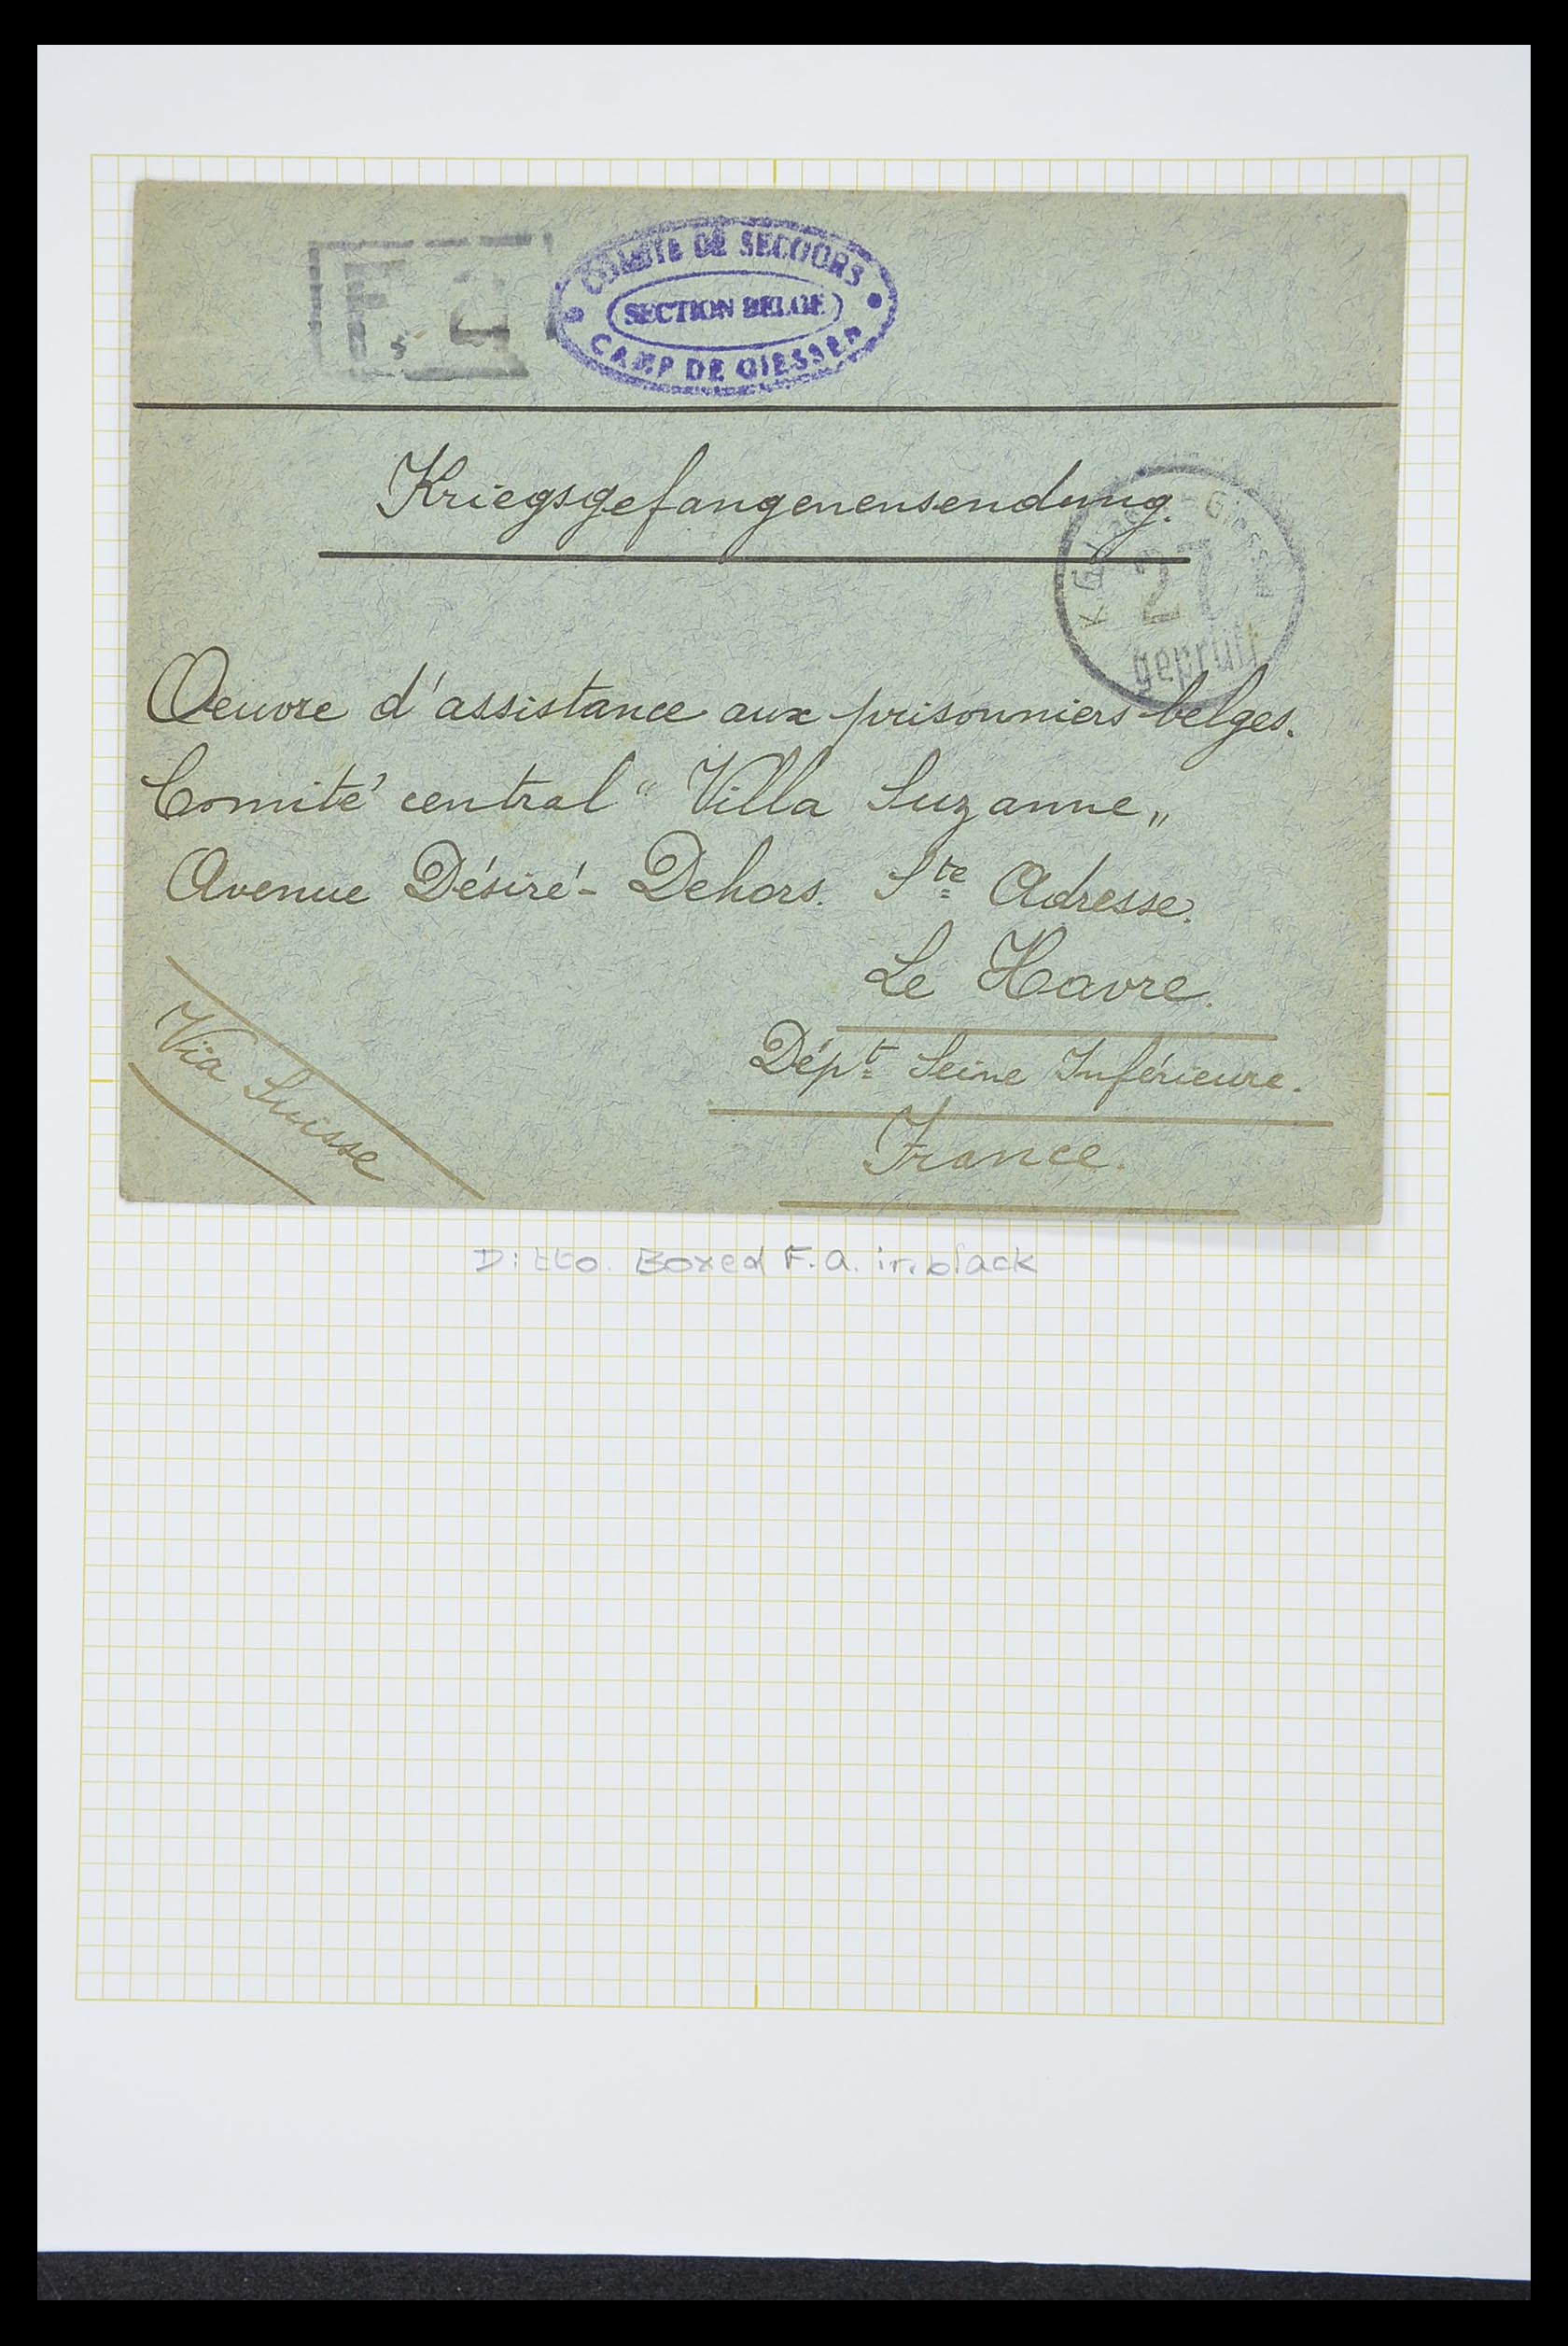 F. a.
COMITE DE SECOURS
SECTION BELGE
CAMP DE GIESSEN
Kriegsgefangenensendung.
Giessen
27
geprüft
Oeuvre d'assistance aux prisonniers belges.
Comité central "Villa Suzanne„
Avenue Désiré-Dehors. Ste Adresse.
Le Havre.
Dépt Seine Inférieure.
France.
Via Suisse
Ditto. Boxed F.a. in black